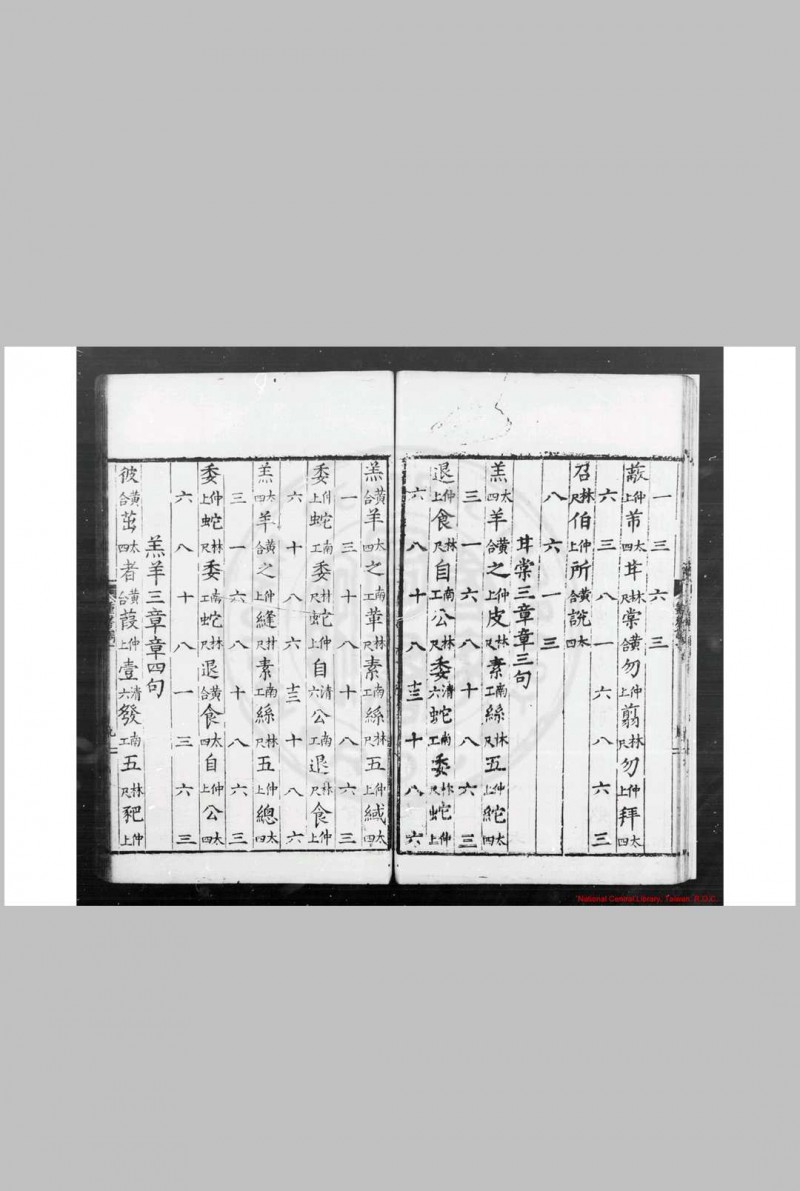 一三六三
蔽仲上芾太四甘林尺棠黃合勿仲上翦林尺勿仲上拜太四
六三八一六八六三
召林尺伯仲上所黃合說太四
八六一三
甘棠三章章三句
羔太四羊黃合之仲上皮林尺素南工絲林尺五仲上紽太四
三一六八十八六三
退仲上食林尺自南工公林尺委清六蛇南工委林尺蛇仲上
六八十八十三十八六
羔黃合羊太四之南工革林尺素南工絲林尺五仲上緎太四
一三十八十八六三
委仲上蛇南工委林尺蛇仲上自清六公南工退林尺食仲上
六十八六十三十八六
羔太四羊黃合之仲上縫林尺素南工絲林尺五仲上總太四
三一六八十八六三
委仲上蛇林尺委南工蛇林尺退黃合食太四自仲上公太四
六八十八一三六三
羔羊三章章四句
彼黃合茁太四者黃合葭仲上壹清六發南工五林尺豝仲上
National Central Library, Taiwan, R.O.C.